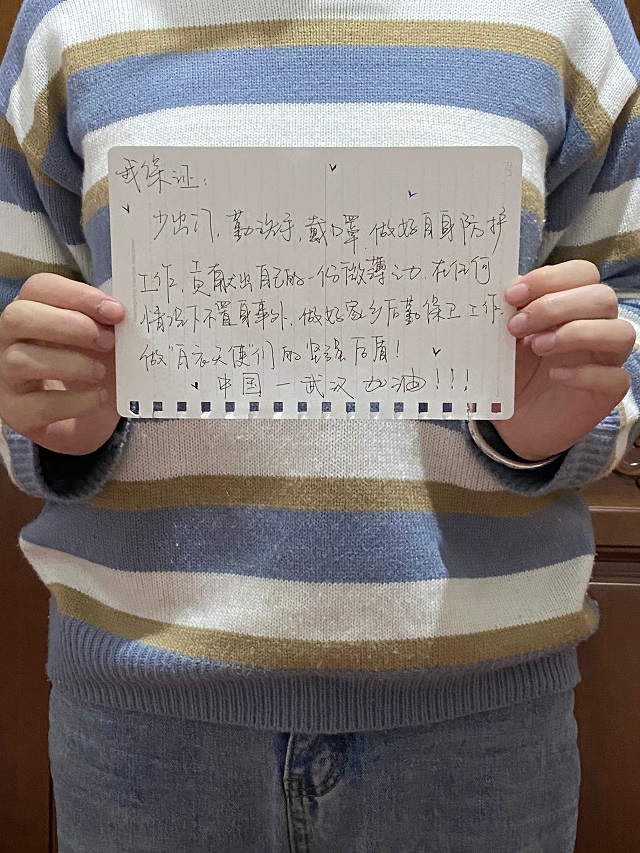 我保证：
少出门，勤洗手，戴口罩，做好自身防护
工作，贡献出自己的一份微薄之力，在任何
情况下不置身事外，做好家乡后勤保卫工作，
做“白衣天使”们的坚强后盾！
中国－武汉加油！！！